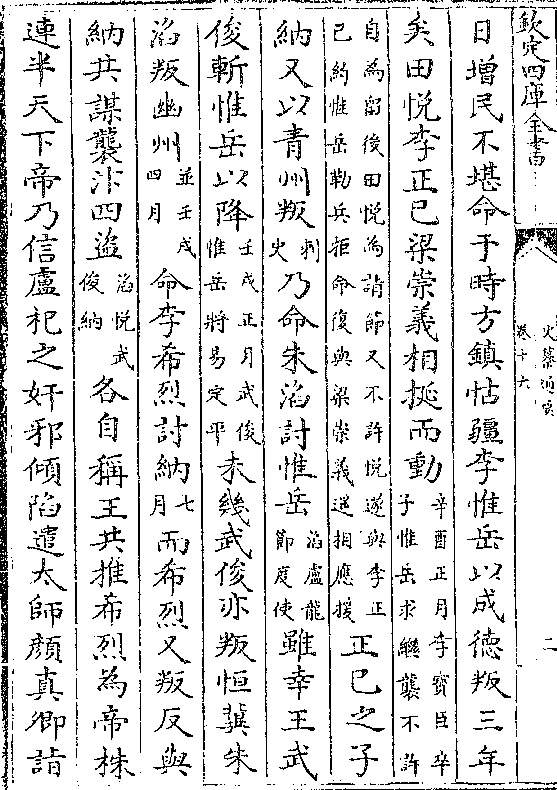 欽定四庫全書
史纂通要
卷十六
二
日增民不堪命于時方鎮怙疆李惟岳以成德叛三年
矣田悅李正已梁崇義相挻而動辛酉正月李寶臣卒子惟岳求繼襲不許
自為留後田悅為請節又不許悅遂與李正已約惟岳勒兵拒命復與梁崇義遞相應援正已之子
納又以青州叛刺史乃命朱滔討惟岳滔盧龍節度使雖幸王武
俊斬惟岳以降壬戌正月武俊惟岳將易定平未幾武俊亦叛恒冀朱
滔叛幽州並壬戌四月命李希烈討納七月而希烈又叛反與
納共謀襲汴四盜滔悅武俊納各自稱王共推希烈為帝株
連半天下帝乃信盧杞之奸邪傾陷遣太師顏真卿詣